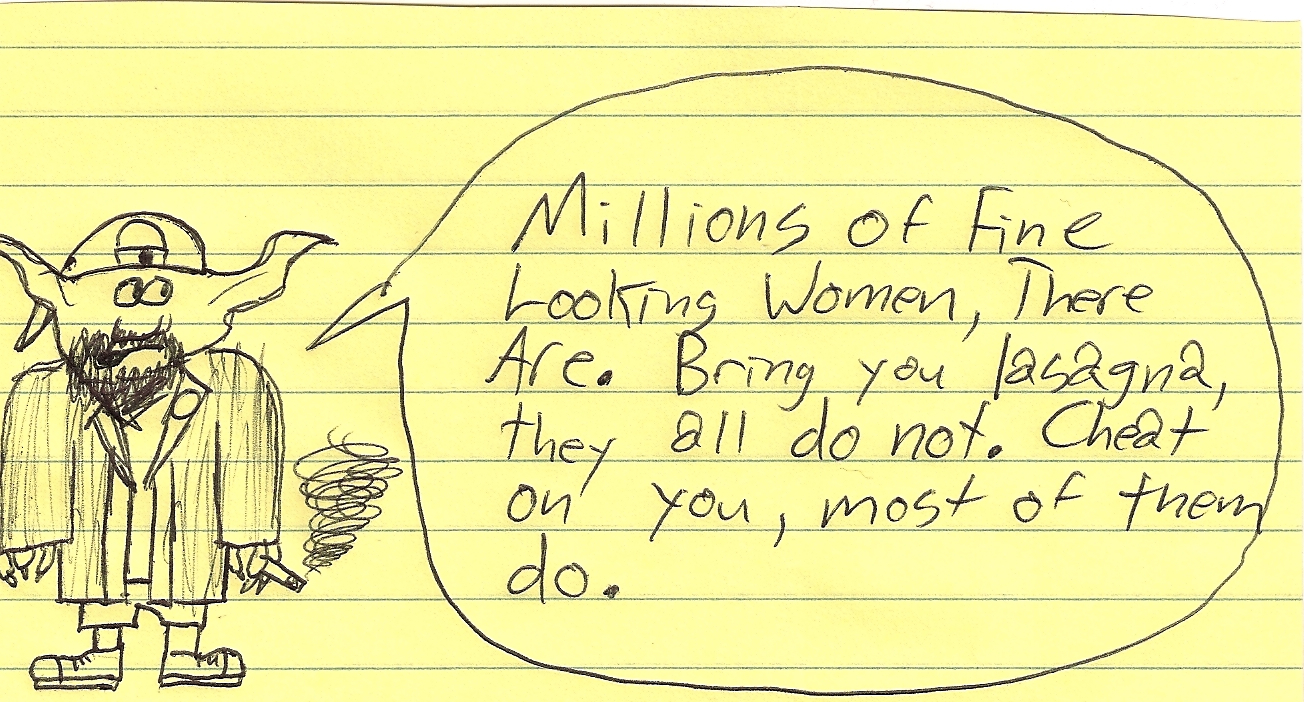 Millions of Fine
Looking Women, There
Are. Bring you lasagna,
they all do not. Cheat
on you, most of them
do.